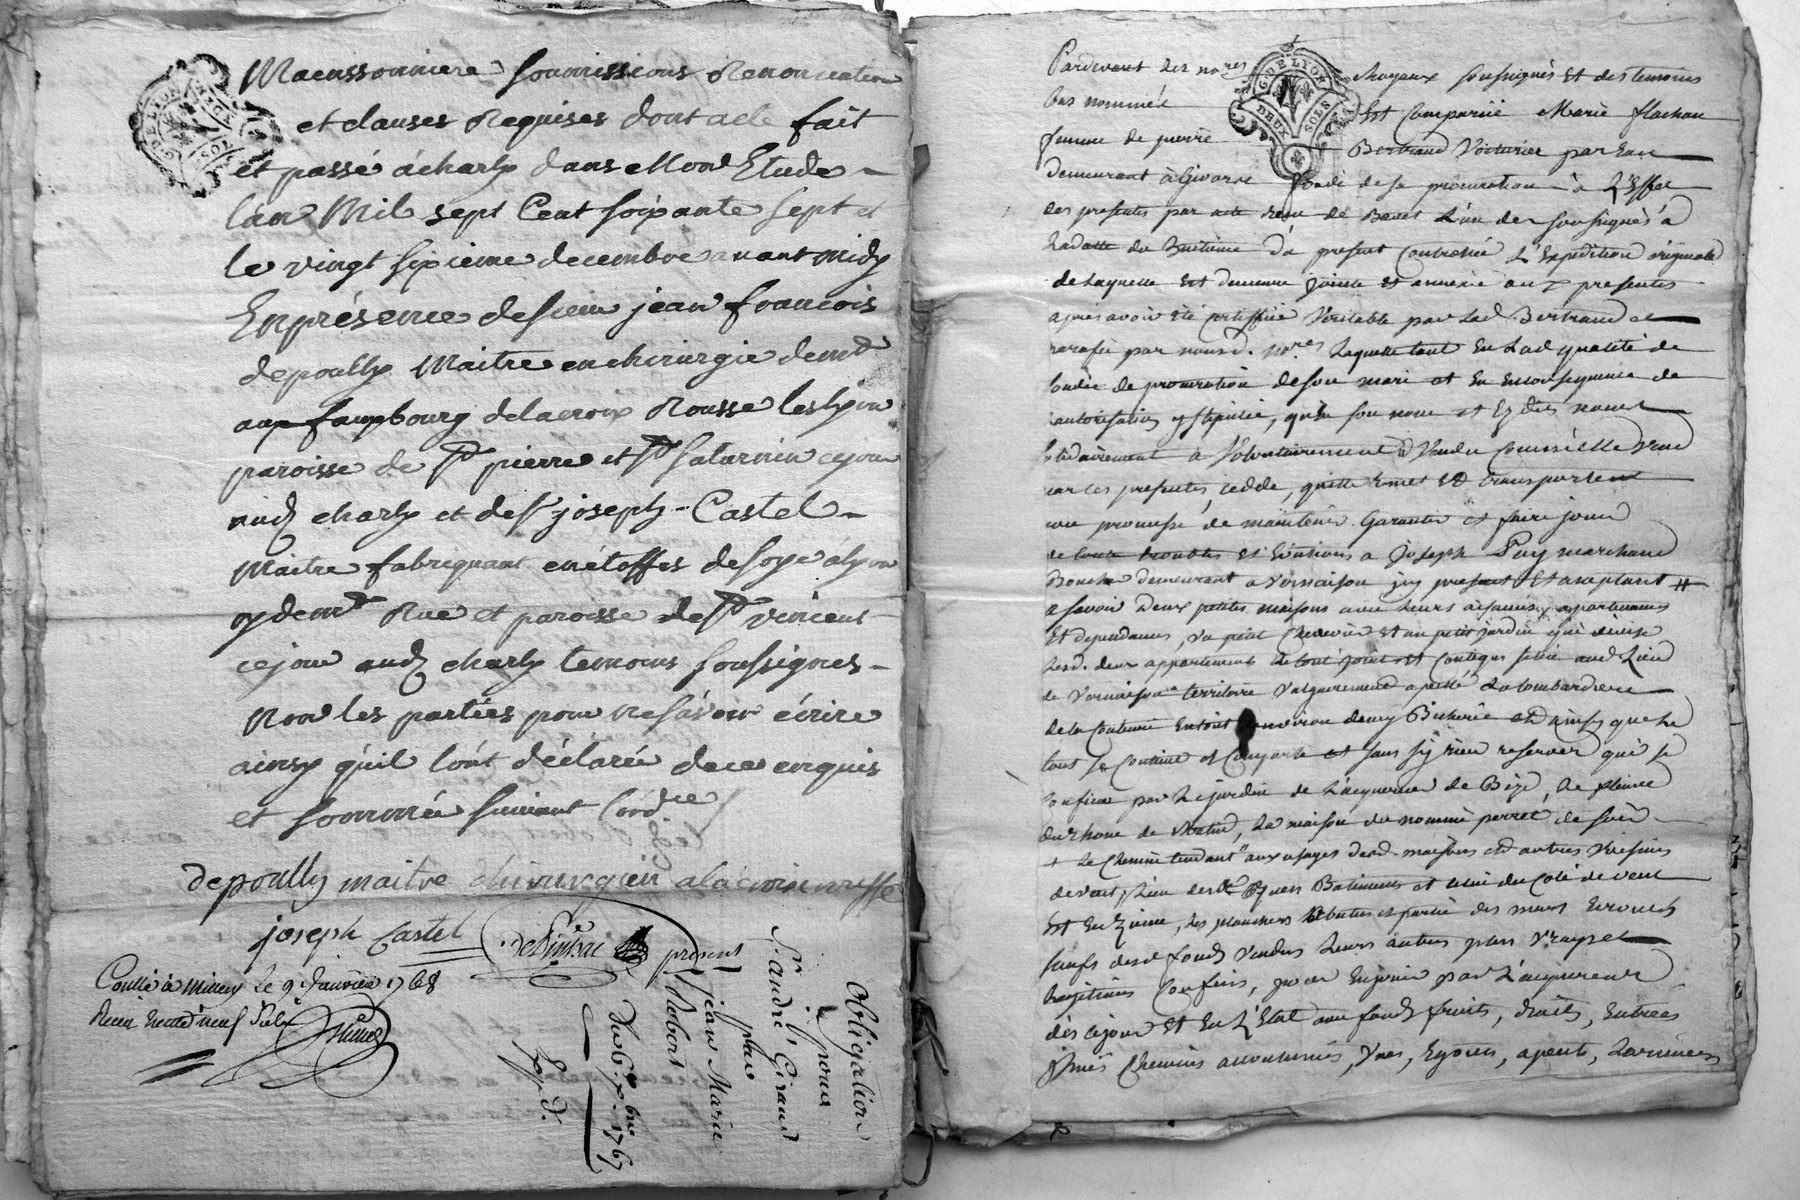 soumissions Renonciation
et clauses Requises dont acte fait
et passé à charly dans Mon Etude
lan Mil sept Cent soixante sept et
le vingt sixieme decembre avant midy
En présence de sieur jean francois
depoully Maitre en chirurgie demt
au fauxbourg de la croix Rousse les lyon
paroisse de St pierre et St saturnin ce jour
aud charly et de sr joseph Castel
Maitre fabriquant en étoffes de soye à lyon
y demt Rue et paroisse de St vincent
ce jour aud charly temoins soussignés
Non les parties pour ne savoir écrire
ainsy qu'il l'ont déclaré de ce enquis
et sommée suivant l'ordce
depoully maitre chirurgien a la croix rousse
joseph Castel
present
le 9 Janvier 1768
Obligation
pour
Sr andré Giraud
jean Marie
Robert
Du 6e Xbre 1767
Exp. d.
G. DE LYON
DEUX SOLS
G. DE LYON
DEUX SOLS
Pardevant les nores Royaux soussignés Et des temoins
bas nommés Est Comparüe Marie flachau
femme de pierre Bertrand Voiturier par Eau
demeurant à Givors fondé de sa procuration à L'Effet
des presentes par acte recu de L'un des soussignés a
La datte du huitieme du present Controllé L'Expedition originale
de Laquelle Est demeurée jointe Et annexée aux presentes
apres avoir été certiffiée Veritable par Lad Bertrand et
par nousd. nores Laquelle tant En Lad qualité de
de procuration de son mari et En Consequence de
autorisation y stipulée, qu'en son nom et
a Volontairement Vendu Comme elle Vend
par les presentes, cedde, quitte remet Et transporte
promesse de maintenir Garantir et faire jouir
de toute troubles et Evictions a Joseph Puy marchand
Boucher demeurant a Vernaison jcy present Et acceptant
a savoir Deux petites maisons avec Leurs aisances, appartenances
Et dependances, Un petit Et un petit jardin qui divise
Lesd. deux appartements Le tout joint et Contigus situé aud Lieu
de Vernaison territoire Vulgairement apellé La lombardiere
de la Contenue En tout d'environ demy Bicherée et ainsy que Le
tout se Contient et Comporte et sans s'y rien reserver qui se
confine par Le jardin de L'acquereur de Bize, Le fleuve
du rhone de Matin, La maison du nommé perret de soir
Le Chemin tendant aux usages desd. maisons et autres Voisins
de vent, L'un desd. Batiments et celui du coté de vent
Est En Ruine, Les planchers et partie des murs Ecroulés
saufs desd fonds vendus Leurs autres plus Vrays et
Legitimes Confins, pour En jouir par L'acquereur
dès ce jour Et En L'Etat aux fonds fruits, droits, Entrées
Chemins accoutumés, Vues,